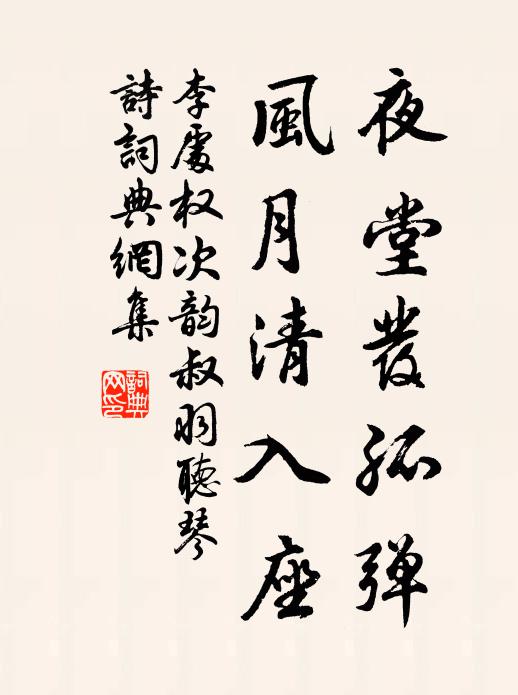 夜堂發孤弹
風月清入座
李處权次韵叔羽聴琴
詩詞典網集
詞典网印